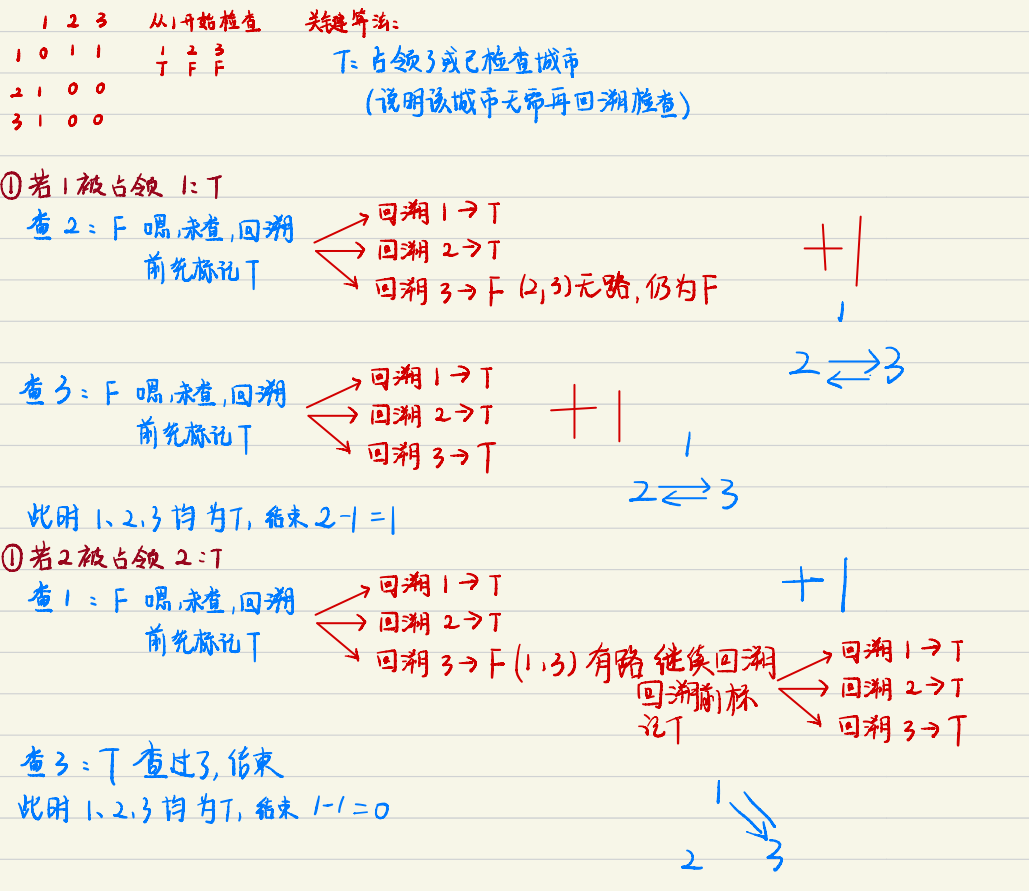 1 2 3 从1开始检查 关键算法:
1 0 1 1 1 2 3
T F F
T: 占领了或已检查城市
2 1 0 0
(说明该城市无需再回溯检查)
3 1 0 0
①若1被占领 1: T
查2: F 嗯,未查,回溯
前先标记T
回溯1→T
回溯2→T
回溯3→F (2,3)无路,仍为F
+1
1
2 3
查3: F 嗯,未查,回溯
前先标记T
回溯1→T
回溯2→T
回溯3→T
+1
1
2 3
此时1、2、3均为T, 结束 2-1=1
①若2被占领 2:T
查1: F 嗯,未查,回溯
前先标记T
回溯1→T
回溯2→T
回溯3→F (1,3) 有路 继续回溯
回溯前标
记T
+1
回溯1→T
回溯2→T
回溯3→T
查3: T 查过了,结束
此时1、2、3均为T, 结束 1-1=0
1
2 3